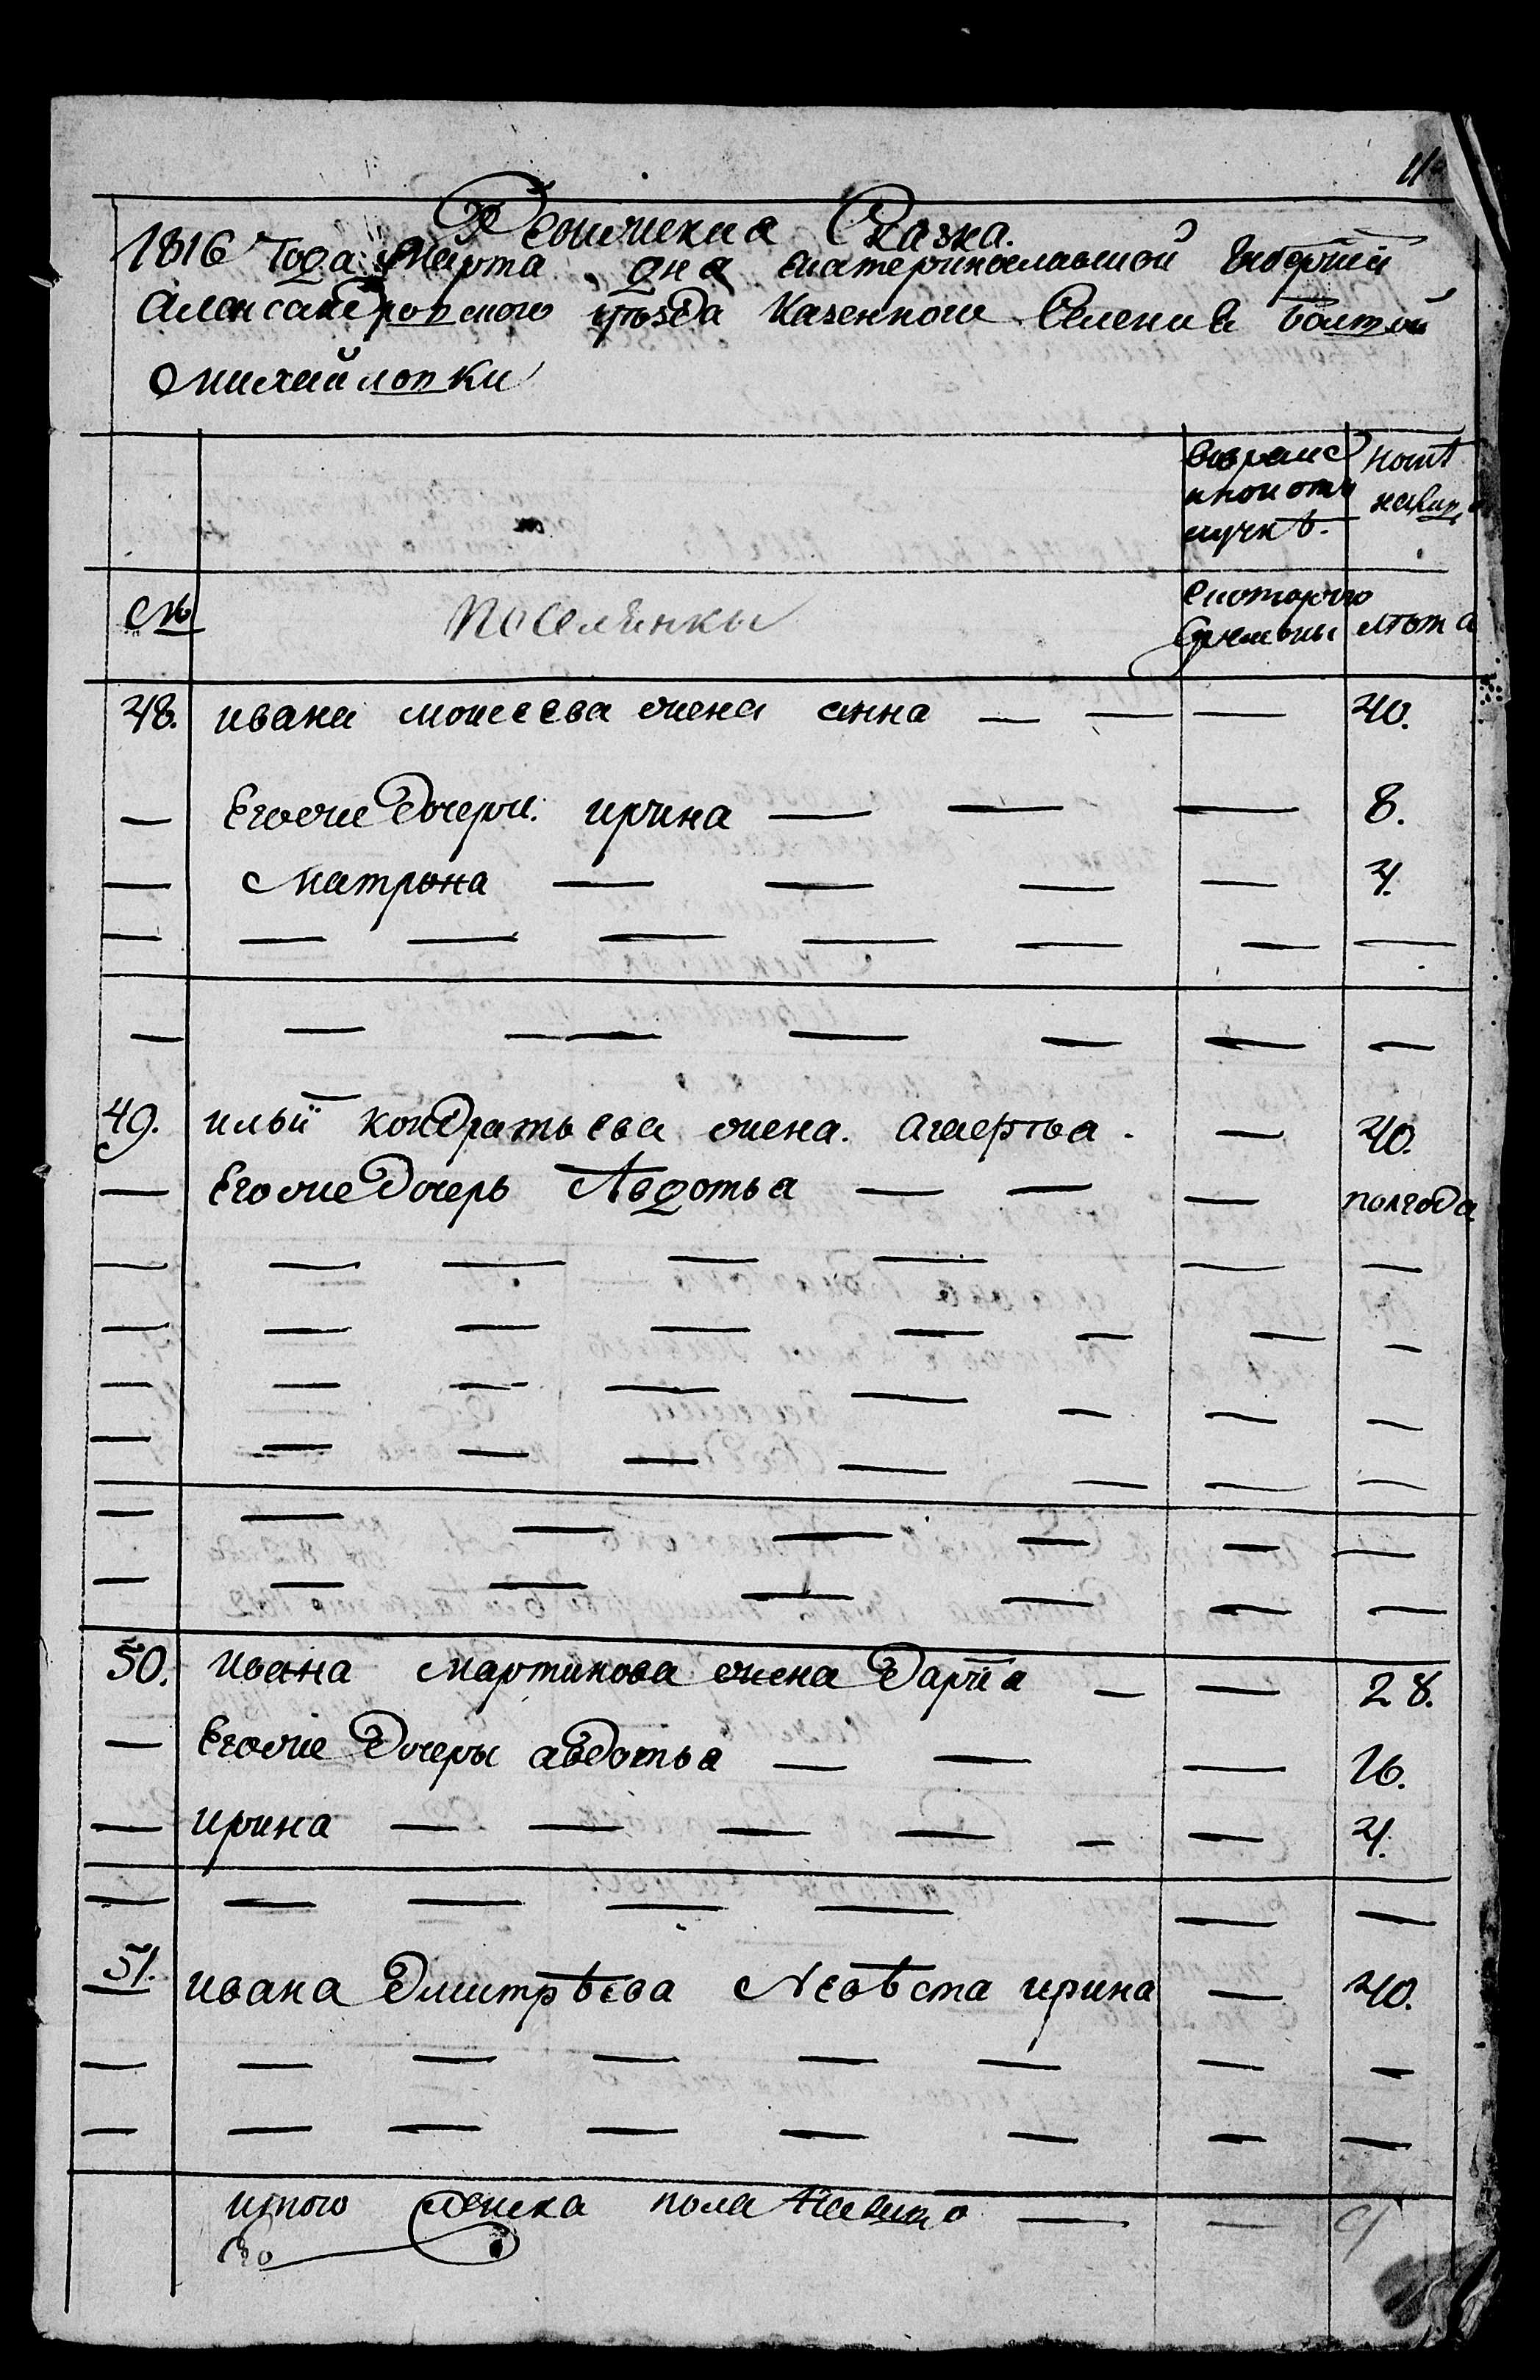 11
Ревижская Сказка.
1816 Года Марта дня Екатеринославской Губернии
Александровского уѣзда Казенного Селения Болшой
Михайловки
вовремен
ной отлу
чкѣ.
Нынѣ
налицо
№
Поселянки
Скоторого
Времѣни
лѣта
48. ивана моисеева жена анна — — — 40.
— Егоже Дочери. ирина — — — 8.
— Матрона — — — — 4.
49. ильи кондратьева жена. агафья. — 40.
— Егоже Дочерь Авдотья — — — полгода
50. ивана мартинова жена Дарія — — 28.
— Егоже Дочеры авдотья — — — 16.
— ирина — — — — — — 4.
51. ивана Дмитрѣева Невѣста ирина — 40.
итого женска пола налицо — — 9